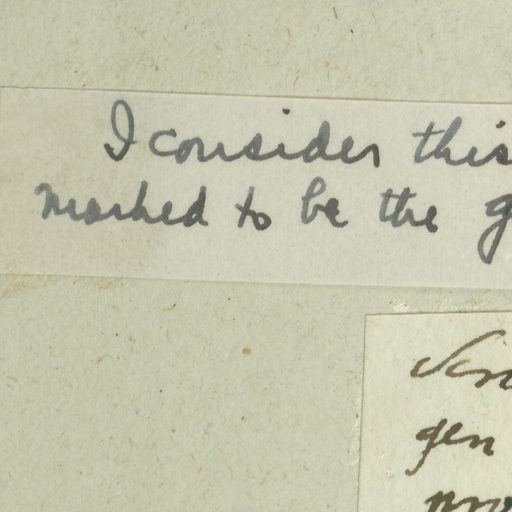 I consider this
marked to be the g
gen